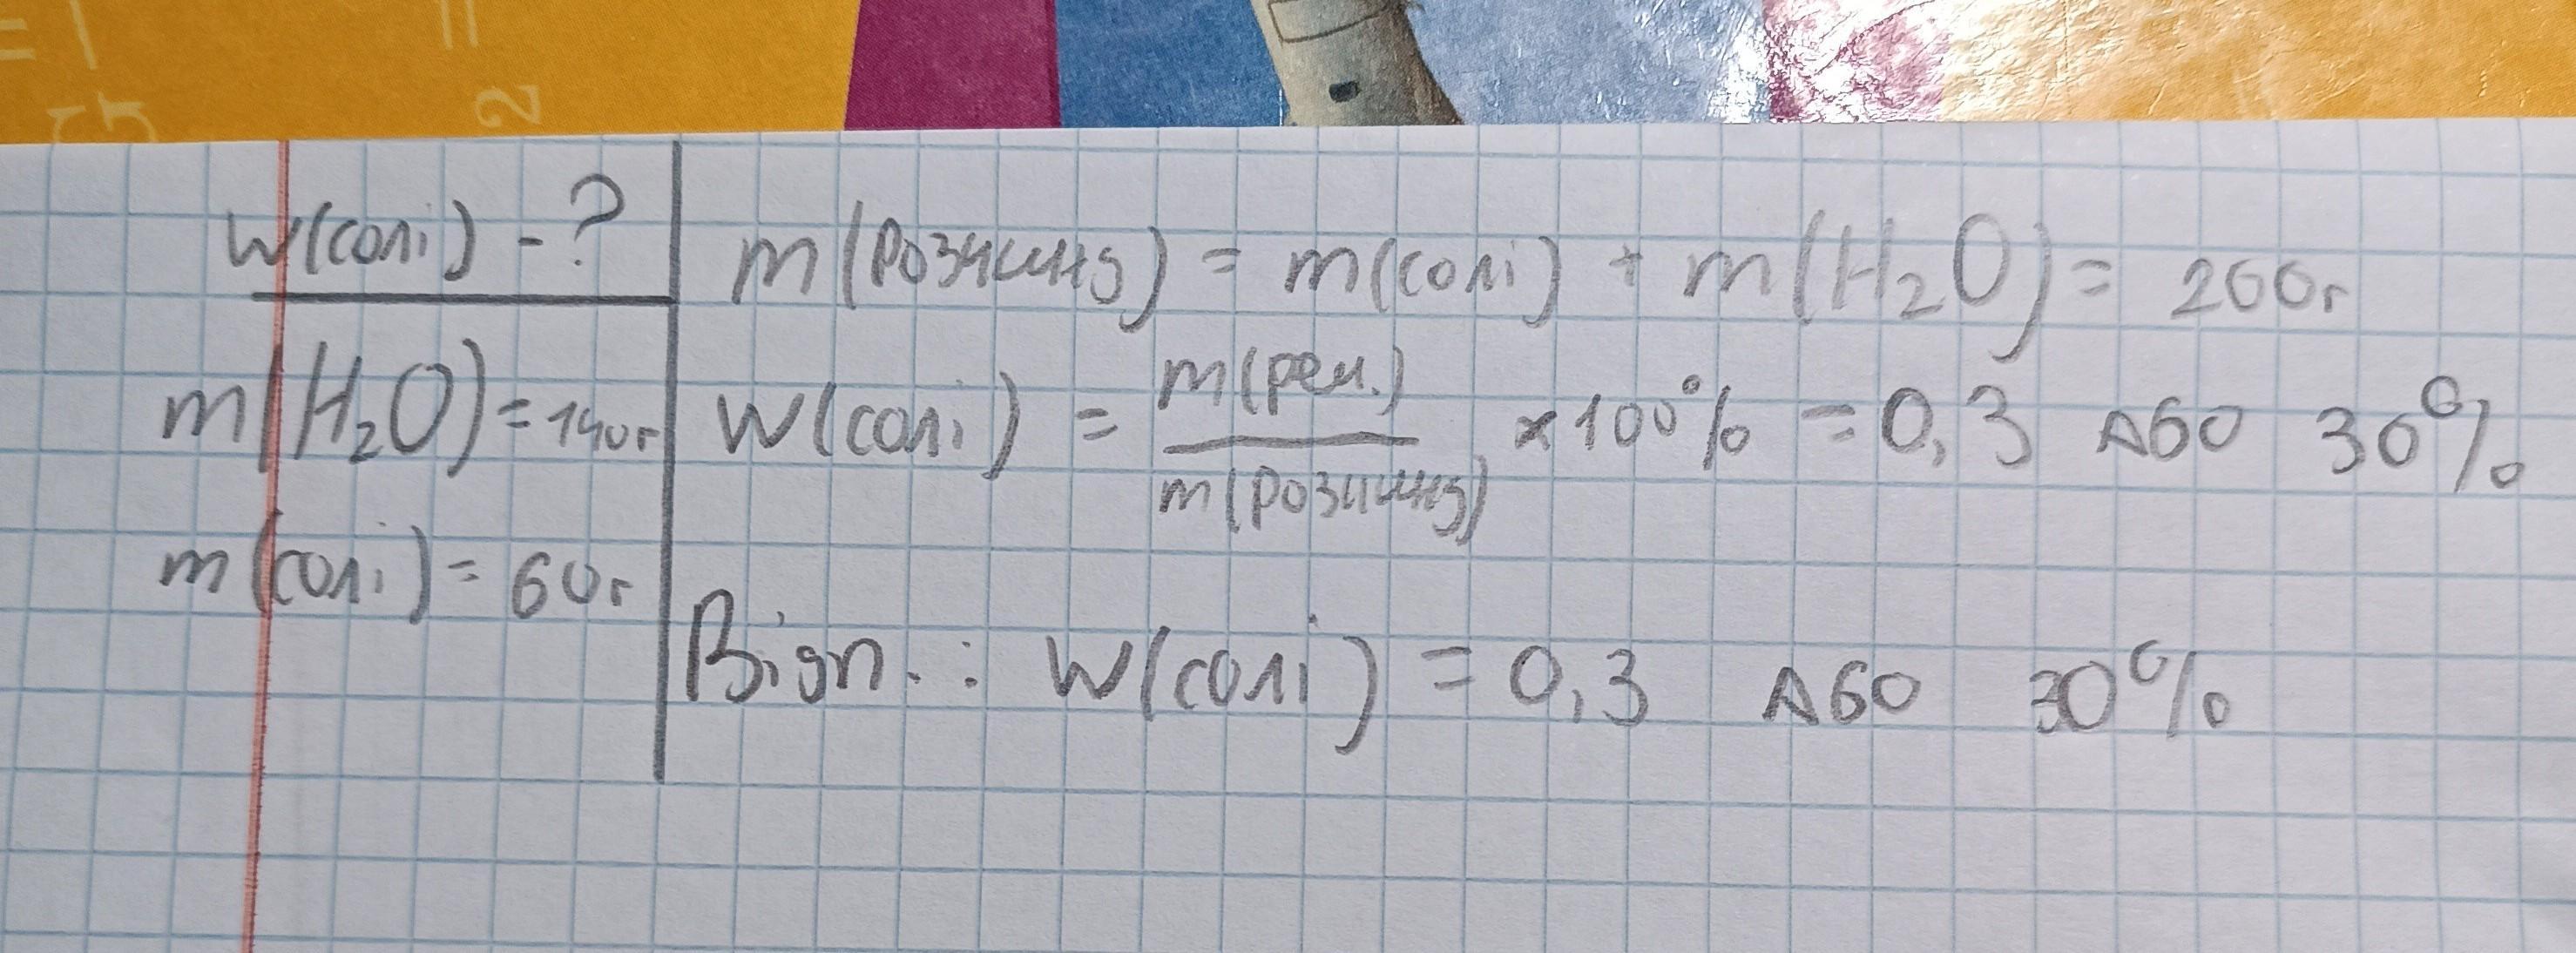 W(солі) - ?
m(H₂O) = 140г
m(солі) = 60г
m(розчину) = m(солі) + m(H₂O) = 200г
W(солі) = m(реч.) / m(розчину) × 100% = 0,3 або 30%
Відп.: W(солі) = 0,3 або 30%